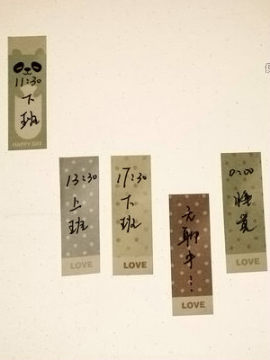 11:30
下
班
HAPPY DAY
13:30
上
班
LOVE
17:30
下
班
LOVE
无
聊
中
...
LOVE
0:00
睡
觉
LOVE